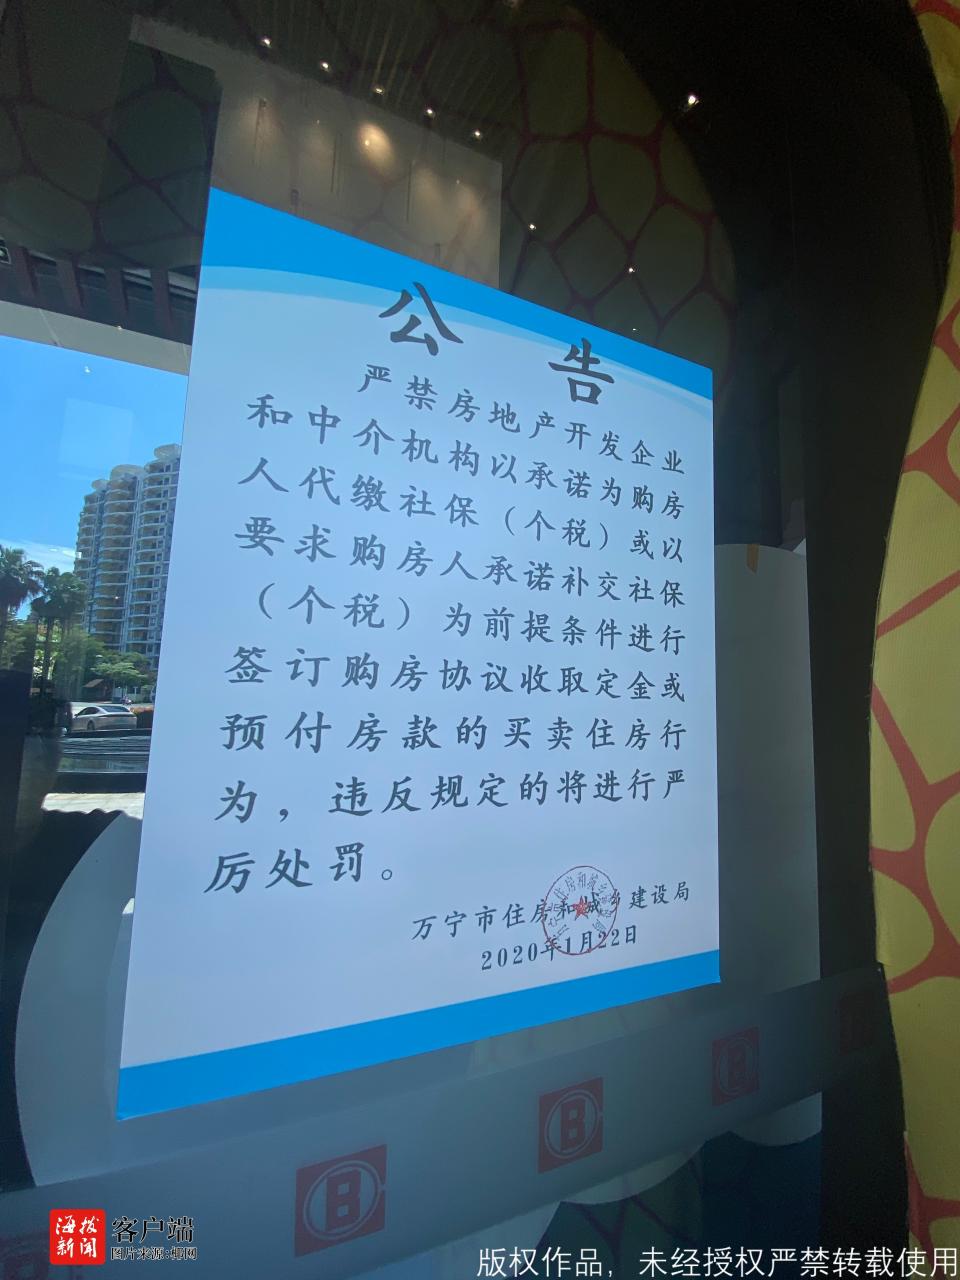 公告
严禁房地产开发企业
和中介机构以承诺为购房
人代缴社保（个税）或以
要求购房人承诺补交社保
（个税）为前提条件进行
签订购房协议收取定金或
预付房款的买卖住房行
为，违反规定的将进行严
厉处罚。
万宁市住房和城乡建设局
2020年1月22日
B
B
B
海拔新闻
客户端
图片来源：椰网
版权作品，未经授权严禁转载使用